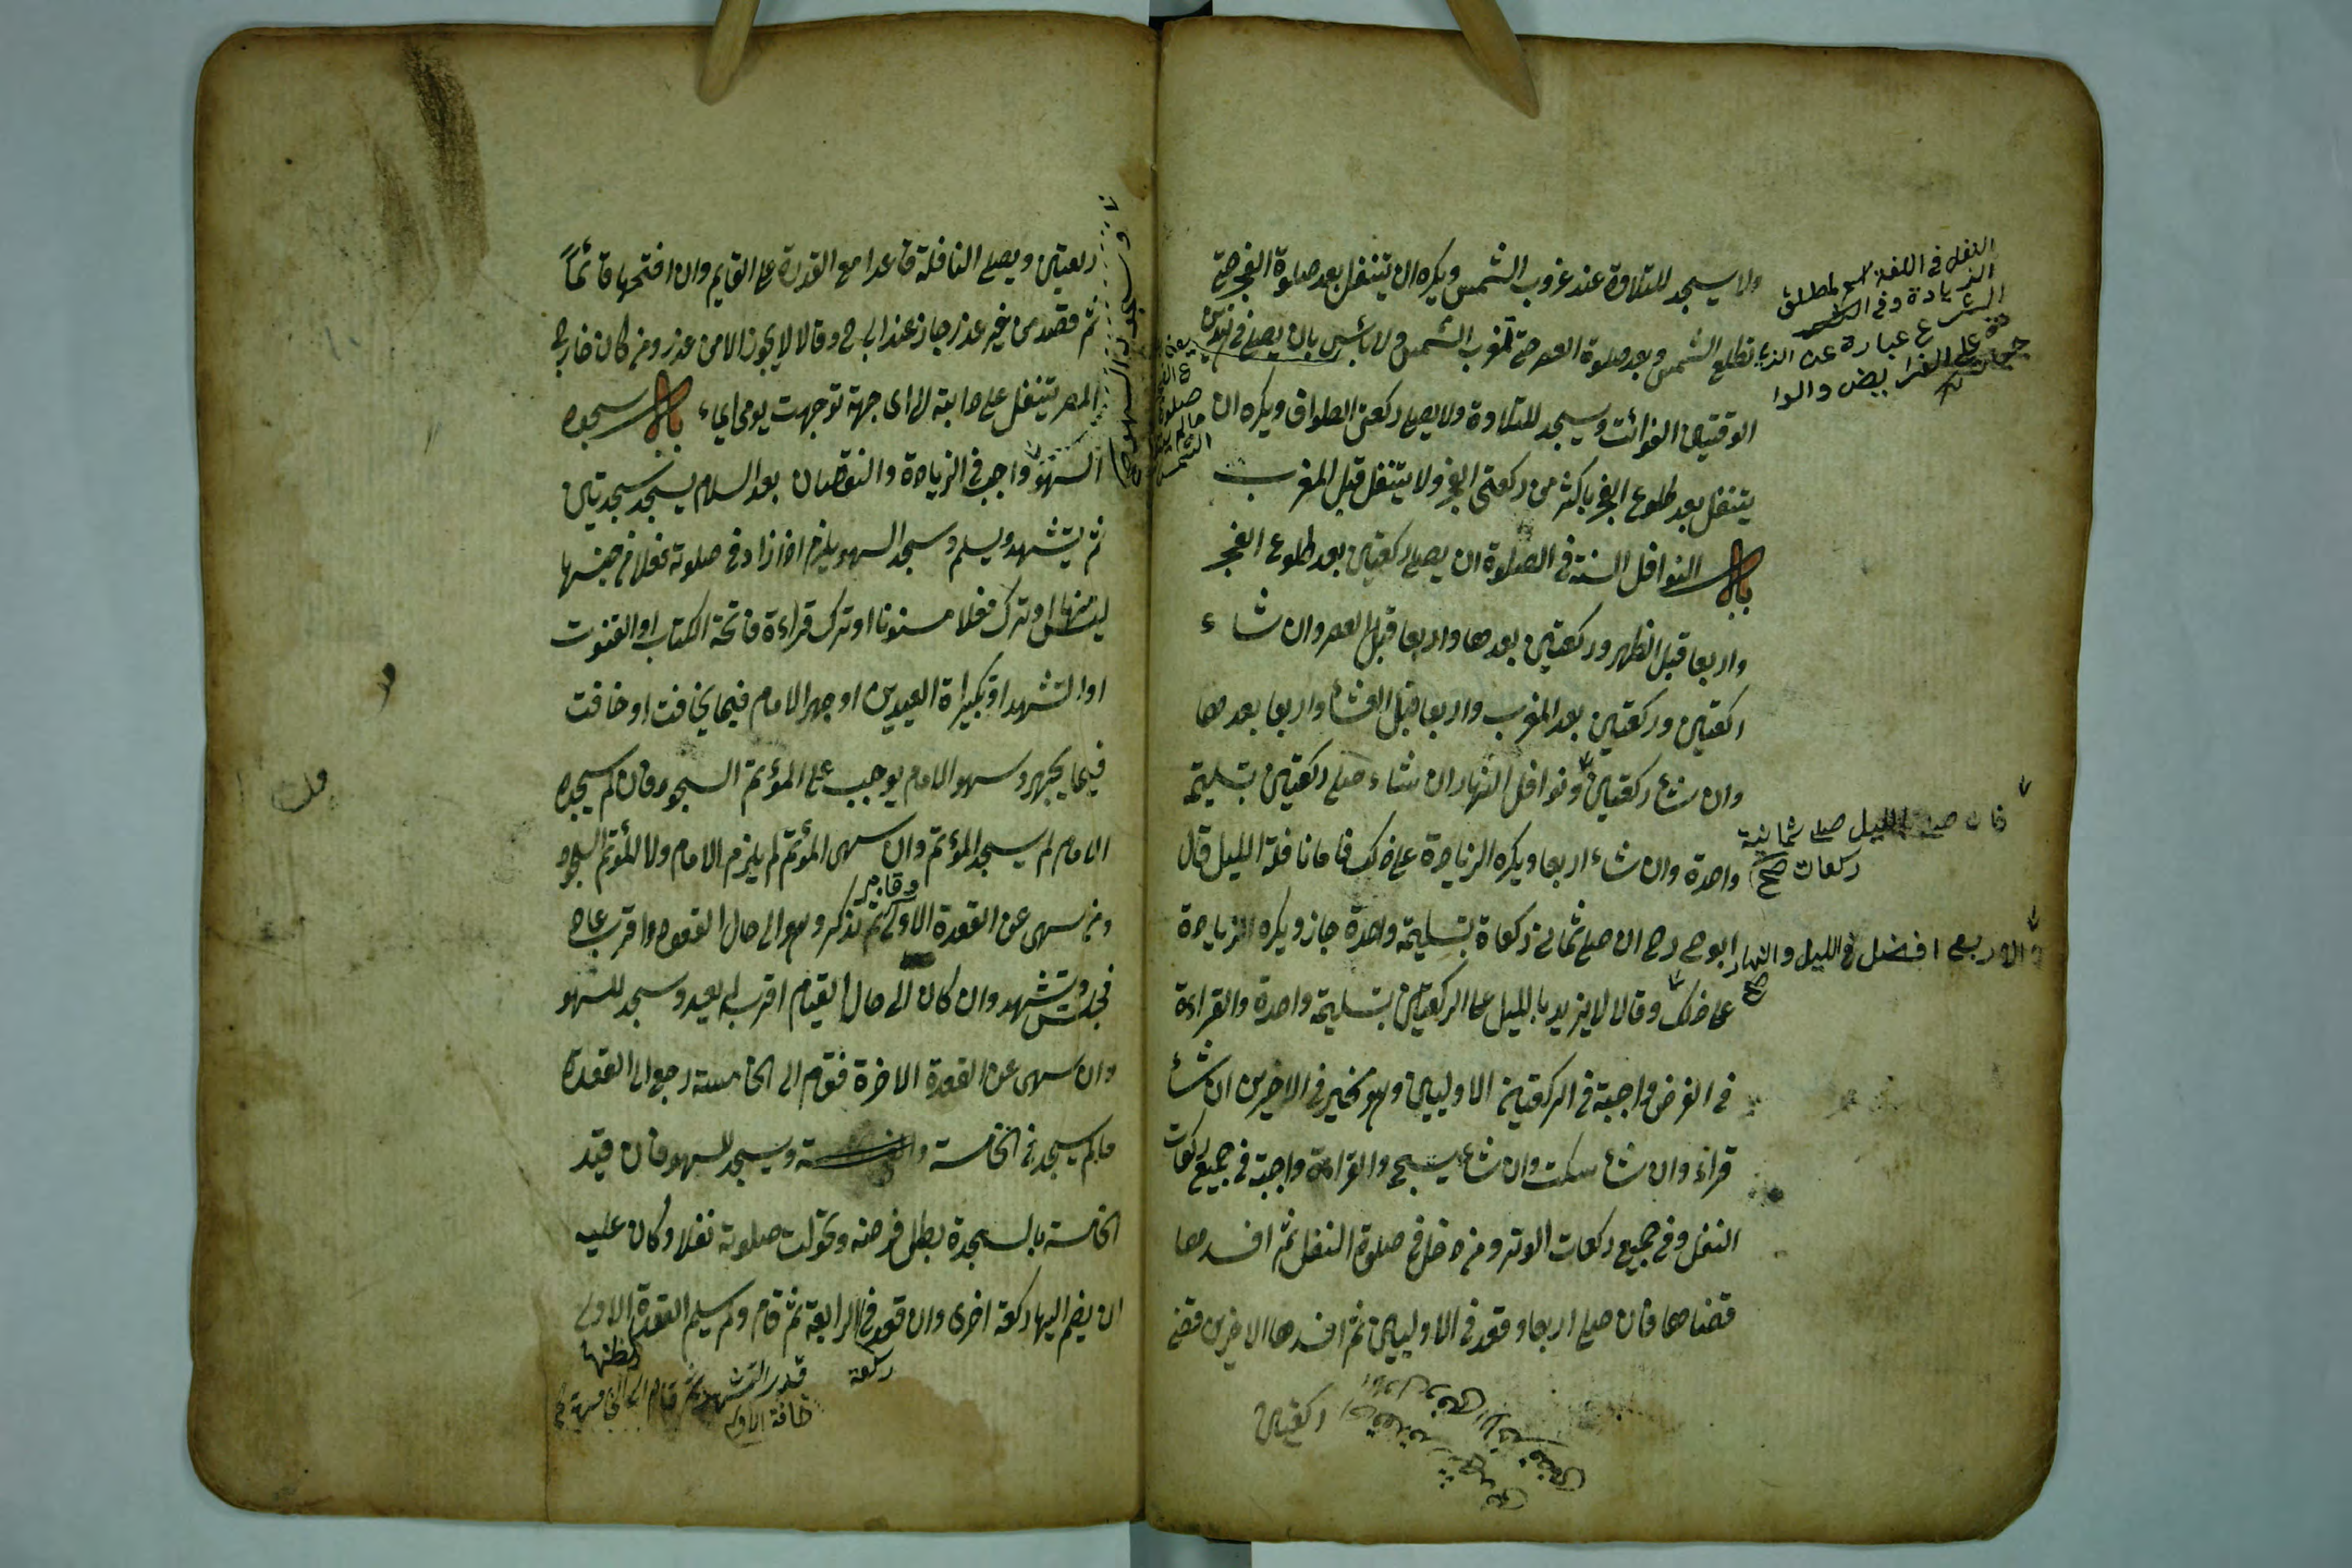 ولا يسجد للتلاوة عند غروب الشمس ويكره ان يتنفل بعد صلوة الفجر حتى
تطلع الشمس وبعد صلوة العصر حتى تغرب الشمس ولا بأس بان يصلى فى هذين
الوقتين الفوائت ويسجد للتلاوة ولا يصلى ركعتى الطواف ويكره ان
يتنفل بعد طلوع الفجر باكثر من ركعتى الفجر ولا يتنفل قبل المغرب
باب النوافل السنة فى الصلوة ان يصلى ركعتين بعد طلوع الفجر
واربعا قبل الظهر وركعتين بعدها واربعا قبل العصر وان شاء
ركعتين وركعتين بعد المغرب واربعا قبل العشاء واربعا بعدها
وان شاء ركعتين ونوافل النهار ان شاء صلى ركعتين بتسليمة
واحدة وان شاء اربعا ويكره الزيادة على ذلك فاما نافلة الليل قال
ابو ح رح ان صلى ثمانى ركعاة بتسليمة واحدة جاز ويكره الزيادة
على ذلك وقالا لا يزيد بالليل على الركعتين بتسليمة واحدة والقراءة
فى الفرض واجبة فى الركعتين الاوليين وهو مخير فى الاخريين ان شاء
قراء وان شاء سكت وان شاء يسبح والقراءة واجبة فى جميع ركعات
النفل وفى جميع ركعات الوتر ومن دخل فى صلوة النفل ثم افسدها
قضاها فان صلى اربعا وقعد فى الاوليين ثم افسدها الاخريين قضى
ركعتين
النفل فى اللغة اسم لمطلق
الزيادة وفى
الشرع عبارة عن الزيا
دة على الفرايض والوا
فان صلى الليل صلى ثمانية
ركعات صح
والاربع افضل فى الليل والنهار
صح
ركعتين ويصلى النافلة قاعدا مع القدرة على القيام وان افتحها قائماً
ثم قعد من غير عذر جاز عند ابى ح وقالا لا يجوز الا من عذر ومن كان خارج
المصر يتنفل على دابته الى اى جهة توجهت يومى ايماء باب سجدة
السهو واجب فى الزيادة والنقصان بعد السلام يسجد سجدتين
ثم يتشهد ويسلم وسجد السهو يلزم اذا زاد فى صلوته فعلا من جنسها
ليس منها او ترك فعلا مسنونا او ترك قراءة فاتحة الكتاب او القنوت
او التشهد او تكبيراة العيدين او جهر الامام فيما يخافت او خافت
فيما يجهر وسهو الامام يوجب على المؤتم السجود فان لم يسجد
الامام لم يسجد المؤتم وان سهى المؤتم لم يلزم الامام ولا المؤتم السجود
ومن سهى عن القعدة الاولى ثم تذكر وهو الى حال القعود اقرب عاد
فجلس وتشهد وان كان الى حال القيام اقرب لم يعد وسجد للسهو
وان سهى عن القعدة الاخرة فقام الى الخامسة رجع الى القعدة
ما لم يسجد فى الخامسة ويسجد للسهو فان قيد
الخامسة بالسجدة بطل فرضه وتحولت صلوته نفلا وكان عليه
ان يضم اليها ركعة اخرى وان قعد فى الرابعة ثم قام ولم يسلم القعدة الاولى
يظنها
ركعة
قدر التشهد ثم قام الى الخامسة